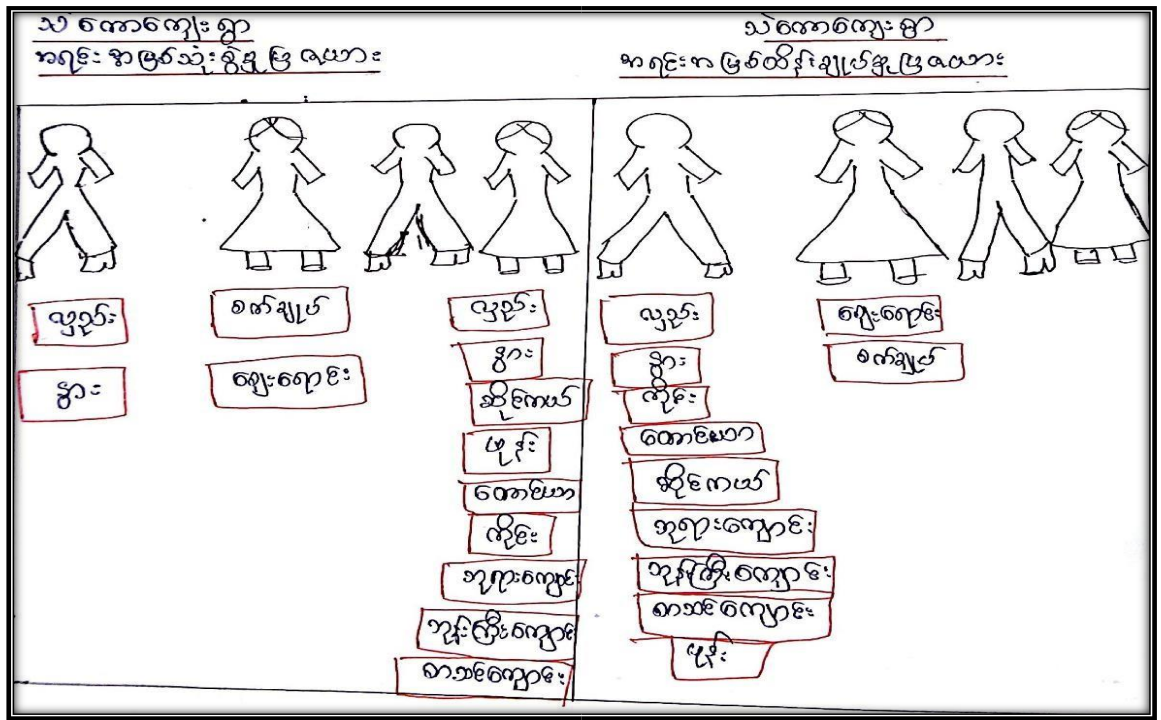 သဲကောကျေးရွာ
အရင်းအမြစ်သုံးစွဲမှုပြဇယား
လှည်း
နွား
စက်ချုပ်
ဈေးရောင်း
လှည်း
နွား
ဆိုင်ကယ်
ဖုန်း
တောင်ယာ
ကိုင်း
ဘုရားကျောင်း
ဘုန်းကြီးကျောင်း
စာသင်ကျောင်း
သဲကောကျေးရွာ
အရင်းအမြစ်ထိန်းချုပ်မှုပြဇယား
လှည်း
နွား
ကိုင်း
တောင်ယာ
ဆိုင်ကယ်
ဘုရားကျောင်း
ဘုန်းကြီးကျောင်း
စာသင်ကျောင်း
ဖုန်း
ဈေးရောင်း
စက်ချုပ်